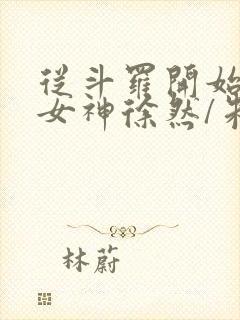 從斗羅開始
女神徐然/朱
林蔚